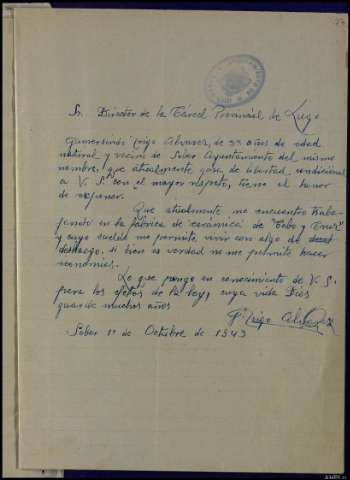 Sr. Director de la Cárcel Provincial de Lugo
Gumersindo Trigo Alvarez, de 33 años de edad
natural y vecino de Sober Ayuntamiento del mismo
nombre, que atualmente goza de libertad condicional
a V. S. con el mayor respeto, tiene el honor
de exponer.
Que atualmente me encuentro traba-
jando en la fabrica de ceramica de "Tebo y
y cuyo sueldo me permite vivir con algo de
desaogo, si bien es verdad no me permite hacer
economias.
Lo que pongo en conocimiento de V. S.
para los efetos de la ley, cuya vida Dios
guarde muchos años
Gº Trigo Alvarez
Sober 1º de Octubre de 1943